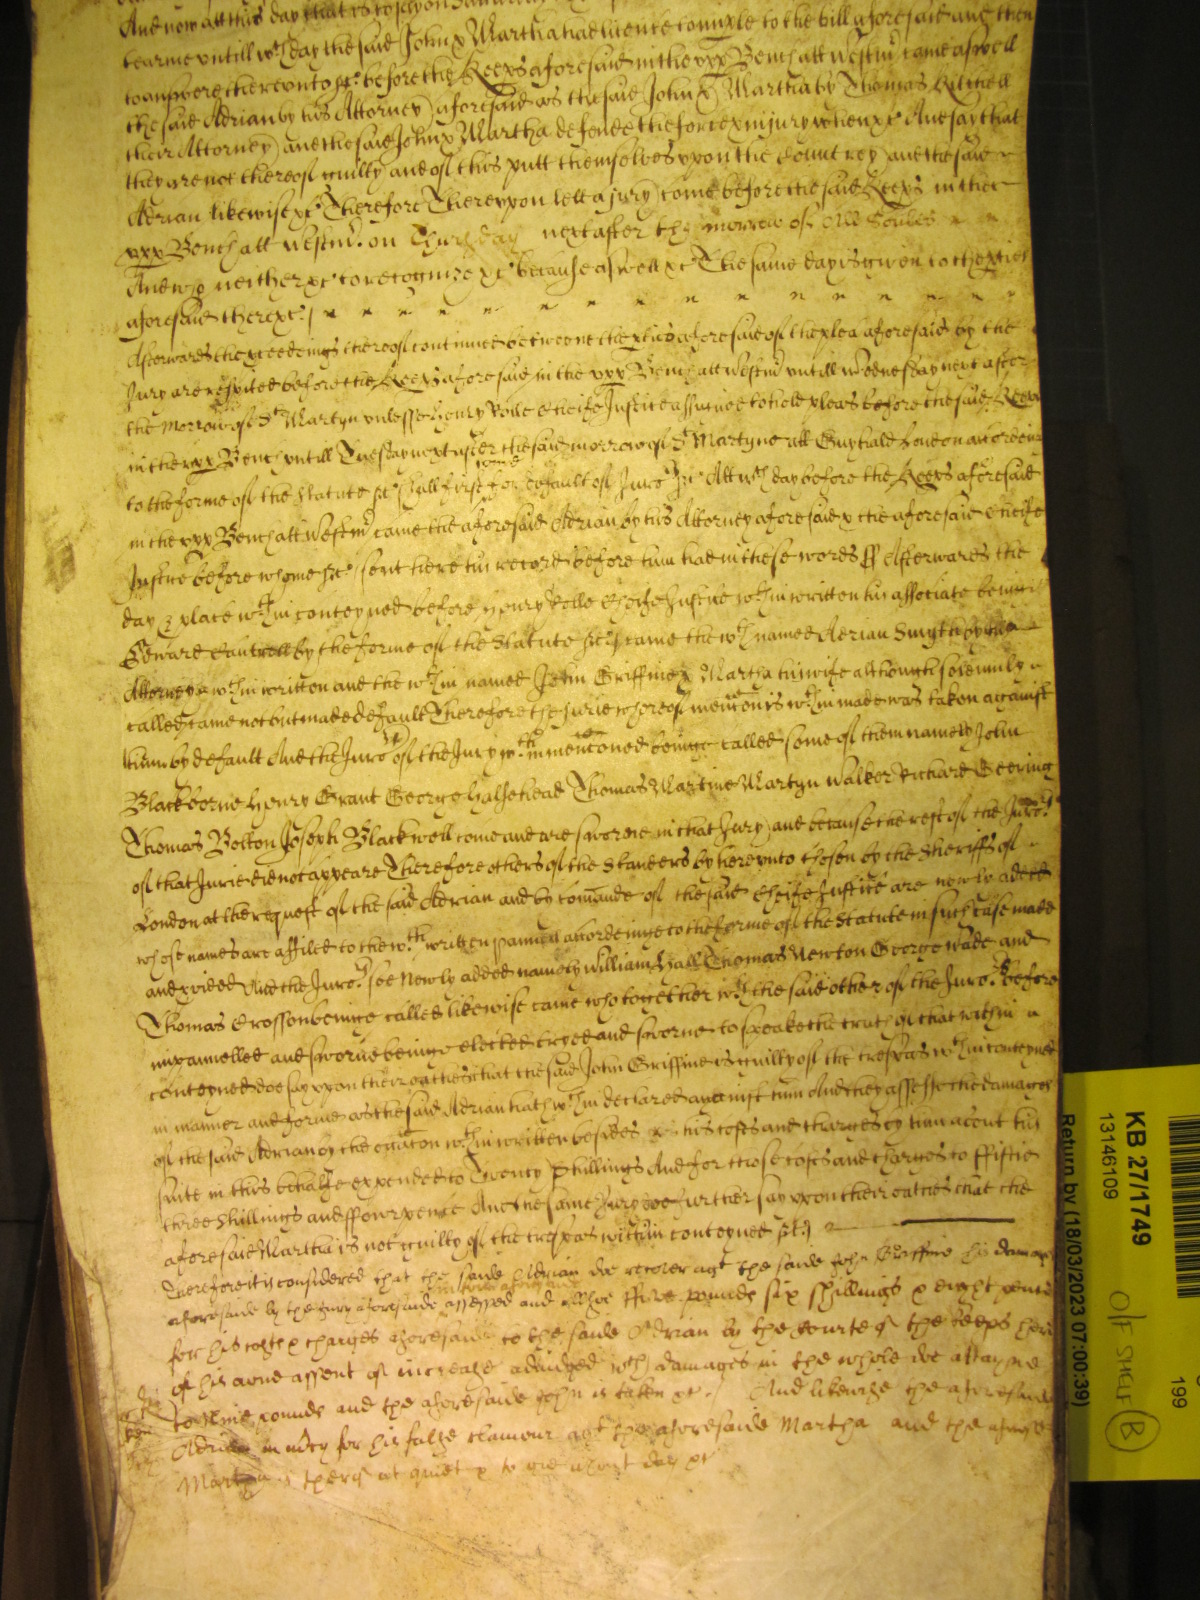 And now att this day that is to say on
tearme untill wch day the said John & Martha had licence to imple to the bill aforesaid and then
to answere thereunto &c. before the Keeps aforesaid in the upp Bench att Westmr came aswell
the said Adrian by his Attorney aforesaid as the said John & Martha by Thomas
their Attorney and the said John & Martha defende the force & injury when &c And say that
they are not thereof guilty and of this putt themselves upon the Countrey and the said
Adrian likewise &c Therefore Thereupon lett a jury come before the said Keeps in the
upp Bench att Westmr. on Thursday next after the morrow of All Soules
And who neither &c to recognize &c because aswell &c The same day is given to the pties
aforesaid there &c.
Afterwards the pceedings thereof continued betweene the pties aforesaid of the plea aforesaid by the
Jury are respited before the Keeps aforesaid in the upp Bench att Westmr untill Wednesday next after
the Morrow of St Martyn unlesse Henry Rolle Cheife Justice assigned to hold pleas before the said Keeps
in the upp Bench untill Tuesday next after the said morrow of St Martyn att Guyhald London accordeing
to the forme of the Statute &c shall first come for default of Juro &c Att wch day before the Keeps aforesaid
in the upp Bench att Westmr came the aforesaid Adrian by his Attorney aforesaid & the aforesaid Cheife
Justice before whome &c sent here his record before him had in these words ss Afterwards the
day & place wthin conteyned before Henry Rolle Cheife Justice wthin written his associate being
Edward Cantwell by the forme of the Statute &c came the wthin named Adrian Smyth by his
Attorney wthin written and the wthin named John Griffine & Martha his wife although solemnly
called came not but made default Therefore the Jurie whereof mencon is wthin made was taken against
them by default And the Juro of the Jury wthin menconed being called some of them namely John
Blackborne Henry Grant George Halsehead Thomas Martine Martyn Walker Richard Geering
Thomas Bolton Joseph Blackwell come and are sworne in that Jury and because the rest of the Juro.
of that Jurie did not appeare Therefore others of the Standers by hereunto chosen by the Sheriffs of
London at the request of the said Adrian and by comande of the said Cheife Justice are newly added
whose names are affiled to the wthin written pannell accordeinge to the forme of the Statute in such case made
and pvided And the Juro. soe Newly added namely William Hall Thomas Newton George Wade and
Thomas Crosson beinge called likewise came who together wth the said other of the Juro. before
impannelled and sworne beinge elected tryed and sworne to speake the truth of that within
conteyned doe say upon their oathes that the said John Griffine is guilty of the trespas wthin conteyned
in manner and forme as the said Adrian hath wthin declared against him And they assesse the damages
of the said Adrian by the occacon wthin written besides his costs and charges by him about his
suite in this behalfe expended to Twenty shillings And for those costs and charges to Fiftie
three shillings and ffour pence And the same Jury doe further say upon their oathes that the
aforesaid Martha is not guilty of the trespas within conteyned &c
Therefore it is considered that the saide Adrian doe recover agt the saide John Griffine his damages
aforesaide by the Jury aforesaide assessed and allsoe ffive pounds six shillings & eight pence
for his costs & charges aforesaide to the saide Adrian by the Courte of the Keeps here
of his owne assent of increase adiudged wch damages in the whole doe attayne
to Nine pounds and the aforesaide John is taken &c. And likewise the aforesaide
Adrian in mercy for his false clamour agt the aforesaide Martha and the aforesaide
Martha is thereof at quiet & to goe about day &c
KB 27/1749
13146109
Return by (18/03/2023 07:00:39)
O/F SHELF B
199